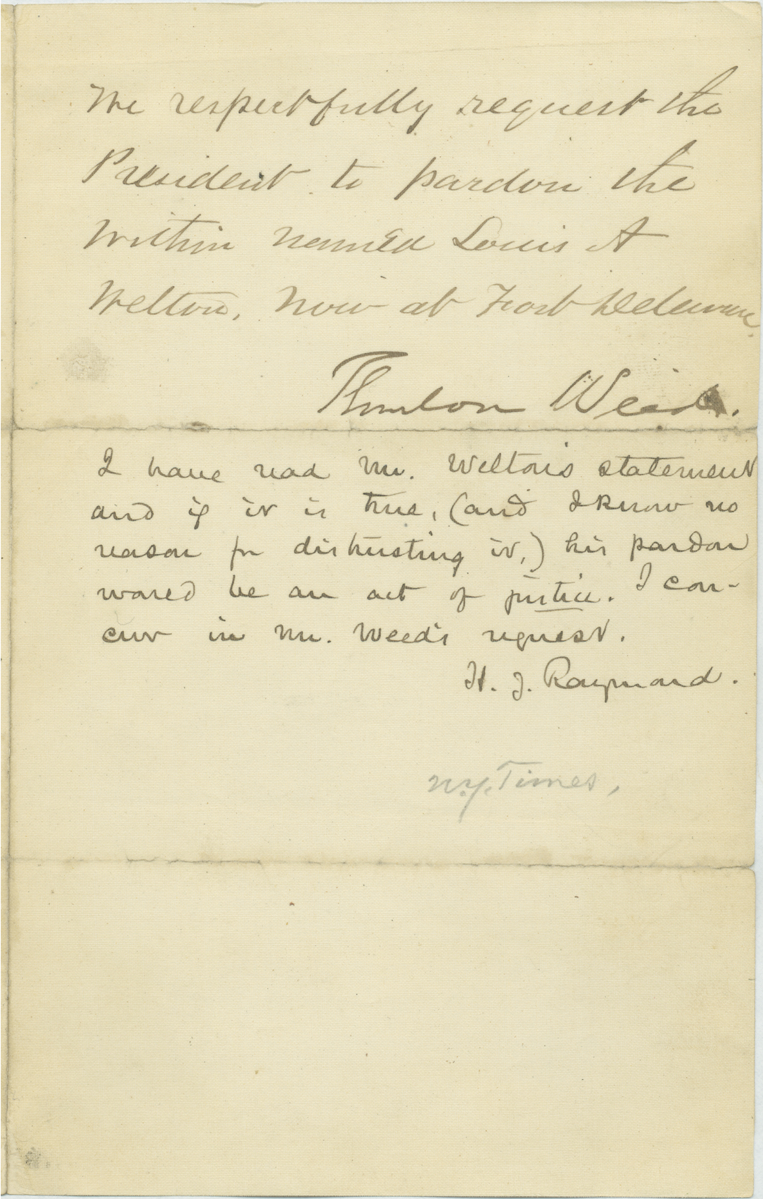 We respectfully request the
President to pardon the
within named Louis A
Welton, now at Fort Delaware.
Thurlow Weed.
I have read Mr. Welton's statement
and if it is true, (and I know no
reason for distrusting it,) his pardon
would be an act of justice. I con-
cur in Mr. Weed's request.
H. J. Raymond.
N.Y. Times,